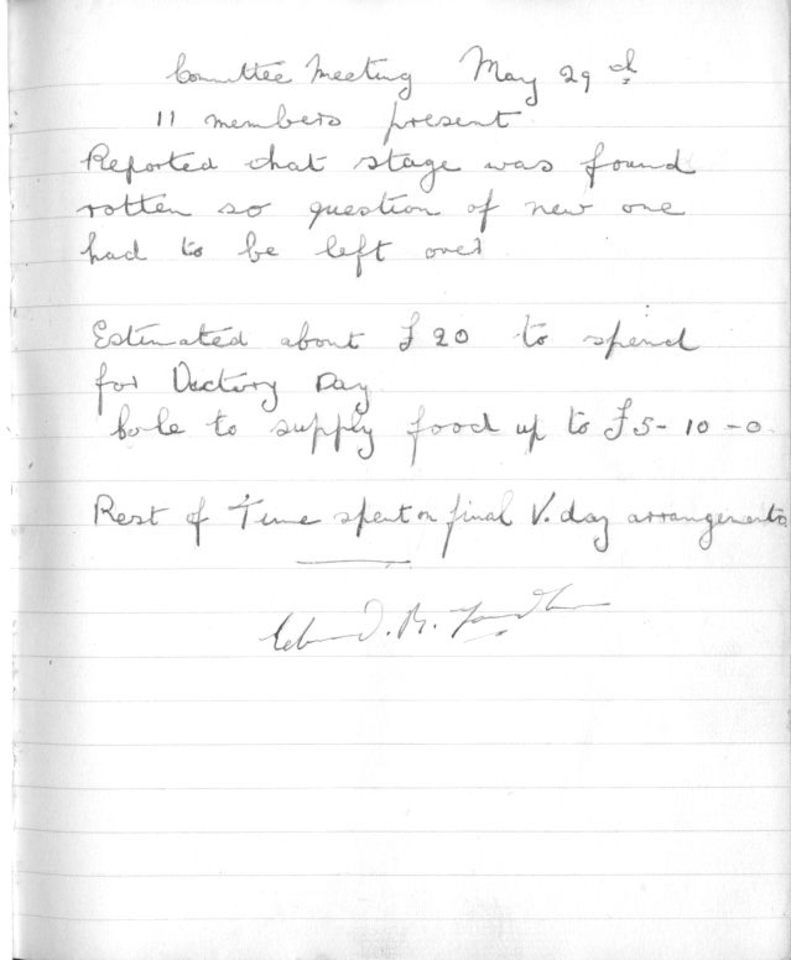 Committee Meeting May 29th
11 members present
Reported that stage was found
rotten so question of new one
had to be left over
Estimated about £20 to spend
for Victory Day
Cole to supply food up to £5-10-0
Rest of Time spent on final V. day arrangements
R.